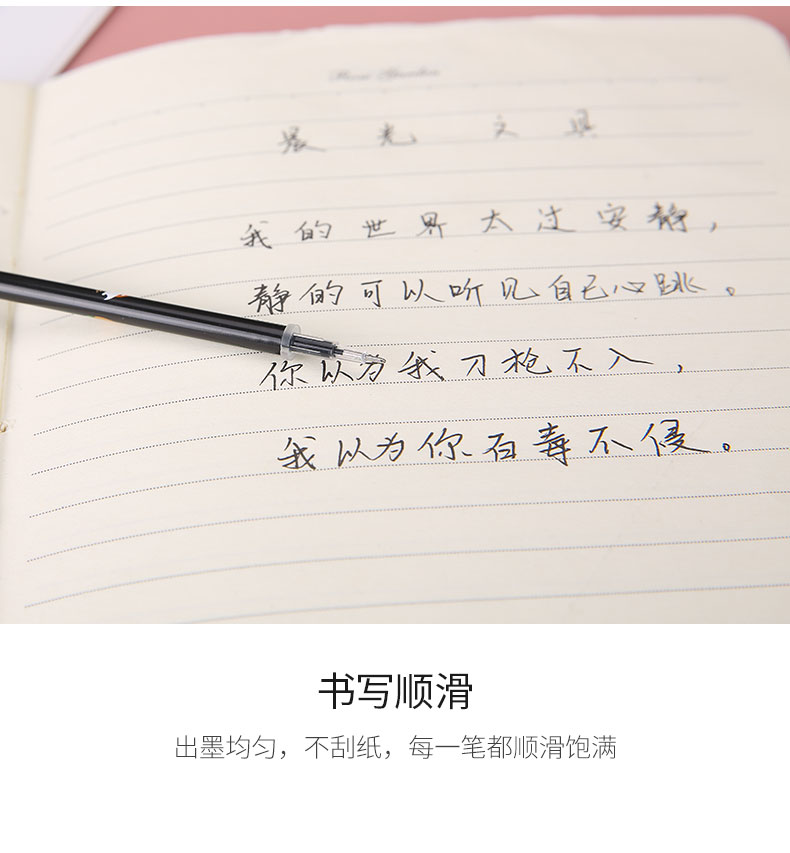 晨光文具
我的世界太过安静，
静的可以听见自己心跳。
你以为我刀枪不入，
我以为你百毒不侵。
书写顺滑
出墨均匀，不刮纸，每一笔都顺滑饱满